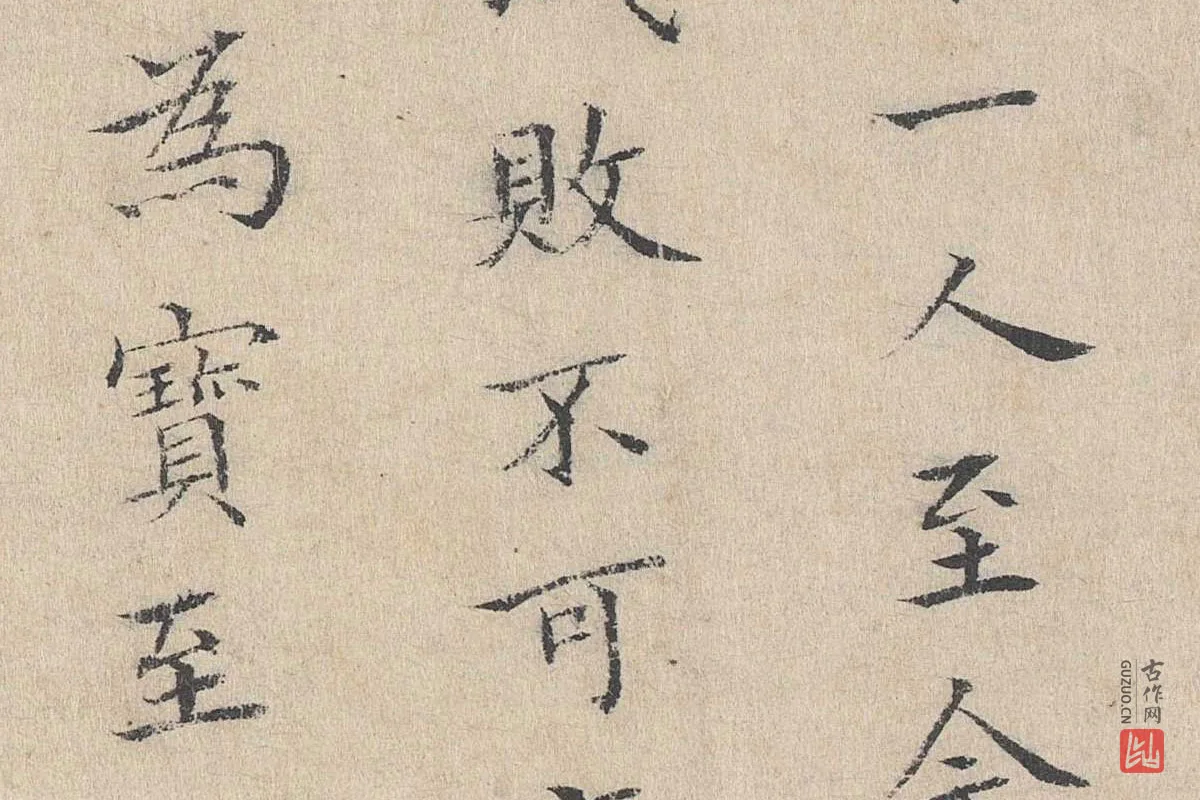 一人至今
敗不可
為寶至
古作网
GUZUO.CN